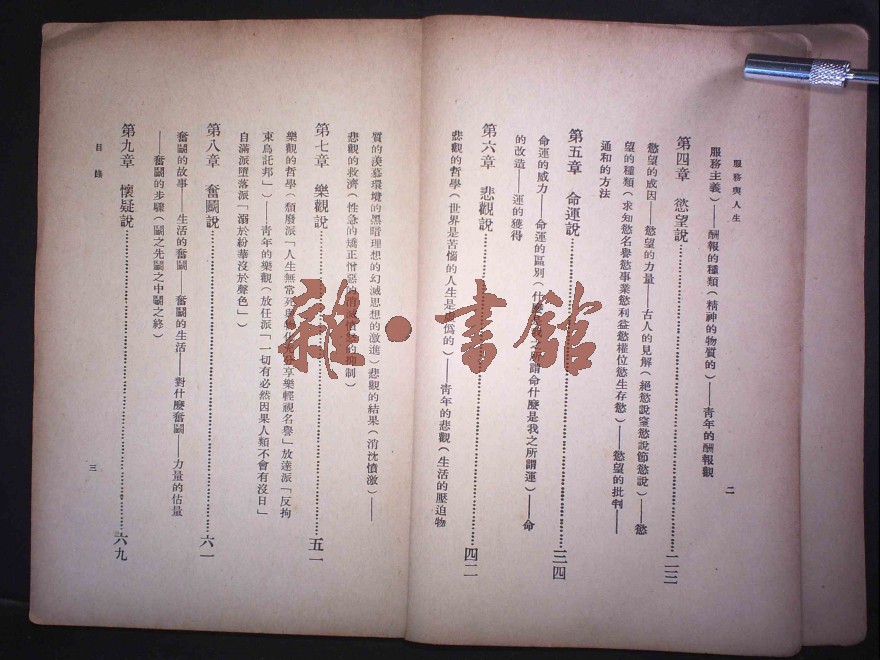 服務與人生
二
服務主義）——酬報的種類（精神的物質的）——青年的酬報觀
第四章 慾望說……二三
慾望的成因——慾望的力量——古人的見解（絕慾說窒慾說節慾說）——慾
望的種類（求知慾名譽慾事業慾利益慾權位慾生存慾）——慾望的批判——
通和的方法
第五章 命運說……三四
命運的威力——命運的區別（什麼是我之所謂命什麼是我之所謂運）——命
的改造——運的獲得
第六章 悲觀說……四二
悲觀的哲學（世界是苦惱的人生是虛僞的）——青年的悲觀（生活的壓迫物
質的羨慕環境的黑暗理想的幻滅思想的激進）悲觀的結果（消沈憤激）——
悲觀的救濟（性急的矯正憎惡的消滅憤怒的抑制）
第七章 樂觀說……五一
樂觀的哲學（頹廢派「人生無常死與物化充分享樂輕視名譽」放達派「反拘
束烏託邦」）——青年的樂觀（放任派「一切有必然因果人類不會有沒日」
自滿派墮落派「溺於紛華沒於聲色」）
第八章 奮鬭說……六一
奮鬭的故事——生活的奮鬭——奮鬭的生活——對什麼奮鬭——力量的估量
——奮鬭的步驟（鬭之先鬭之中鬭之終）
第九章 懷疑說……六九
目錄
三
雜·書館